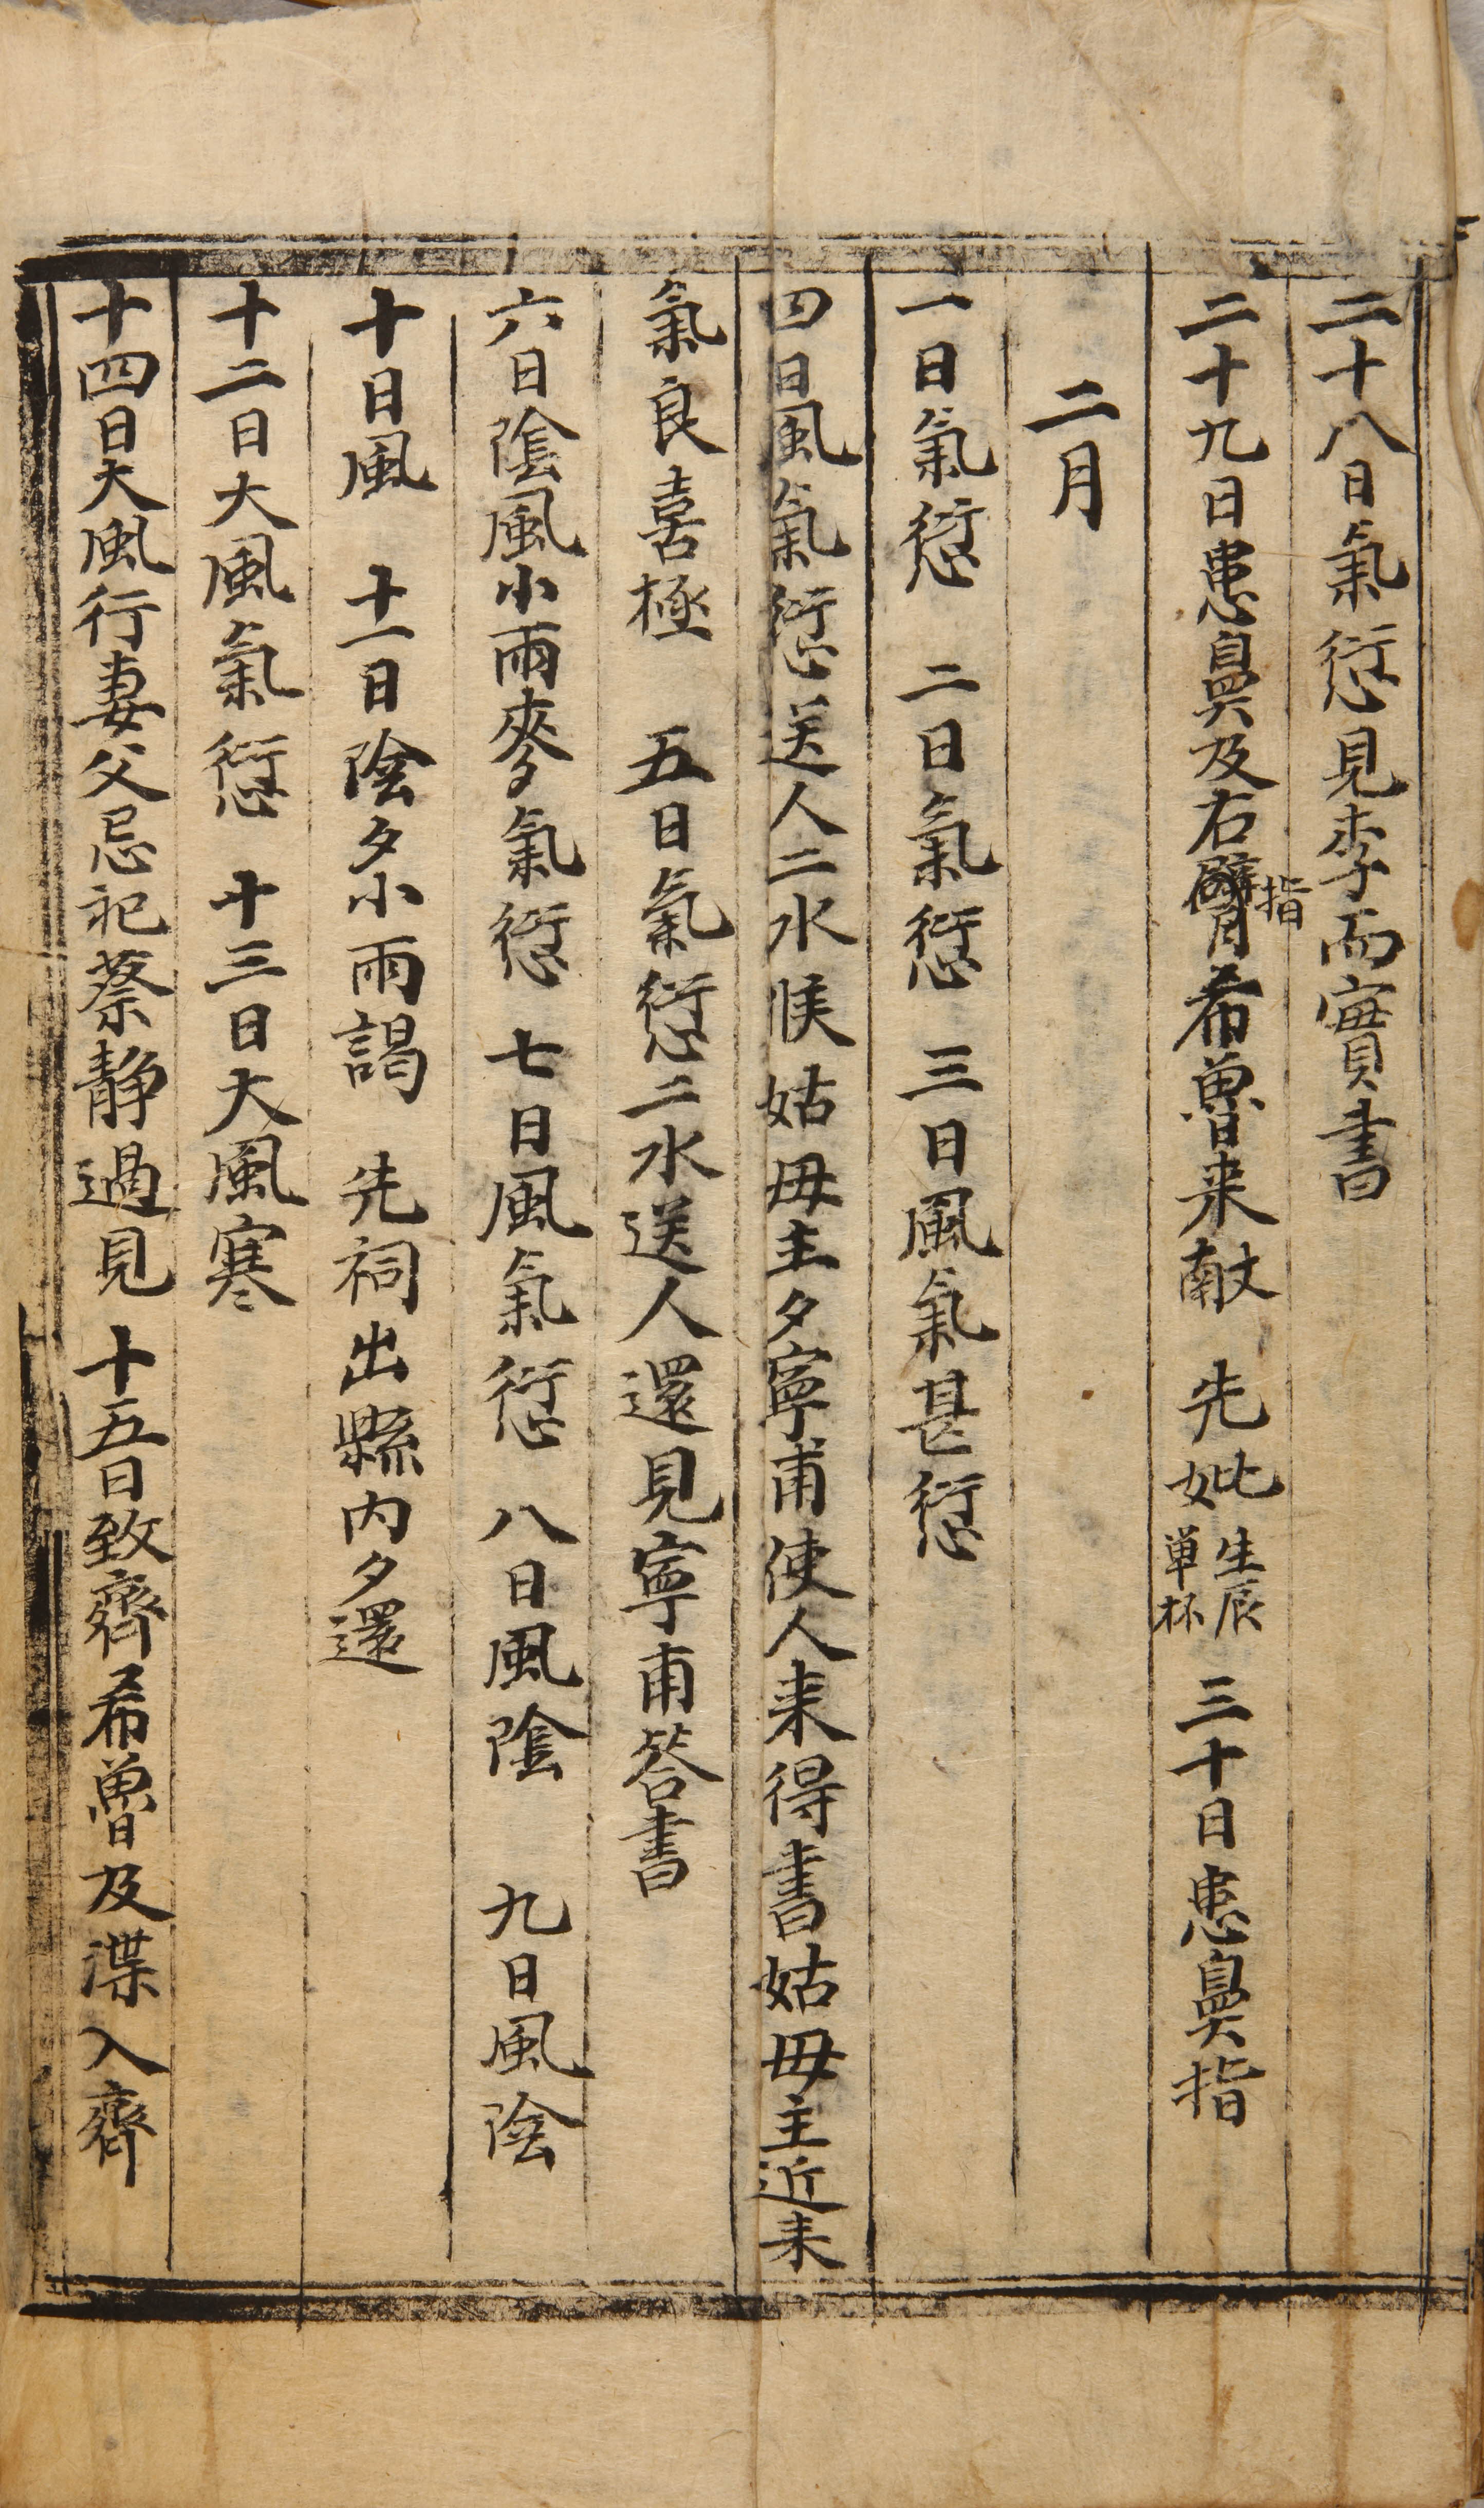 二十八日氣愆見李而實書
二十九日患鼻及右臂指希魯来献 先妣生辰单杯 三十日患鼻指
二月
一日氣愆 二日氣愆 三日風氣甚愆
四日風氣愆送人二水候姑母主夕寧甫使人来得書姑母主近来
氣良喜極 五日氣愆二水送人還見寧甫答書
六日陰風小雨麥氣愆 七日風氣愆 八日風陰 九日風陰
十日風 十一日陰夕小雨謁 先祠出縣内夕還
十二日大風氣愆 十三日大風寒
十四日大風行妻父忌祀蔡静過見 十五日致齊希魯及渫入齊